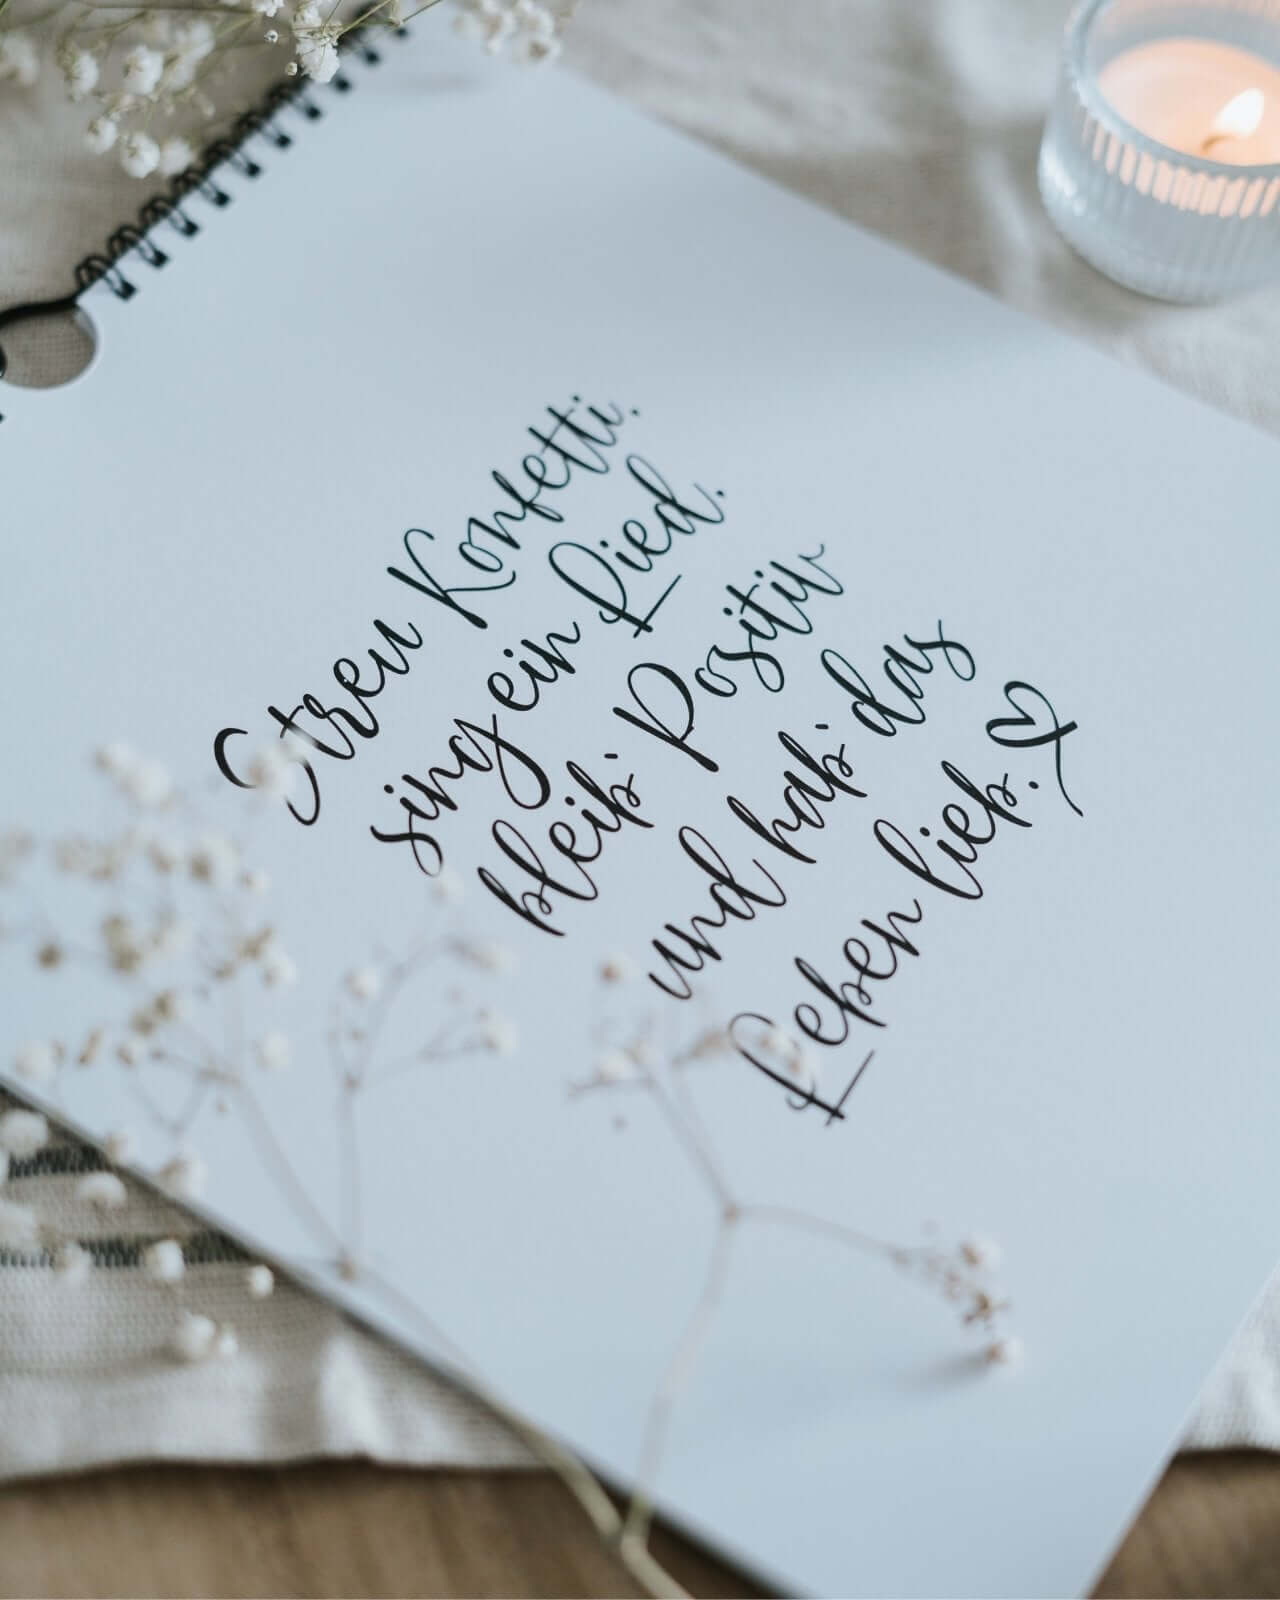 Streu Konfetti.
sing ein Lied.
bleib' Positiv
und hab' das
Leben lieb.